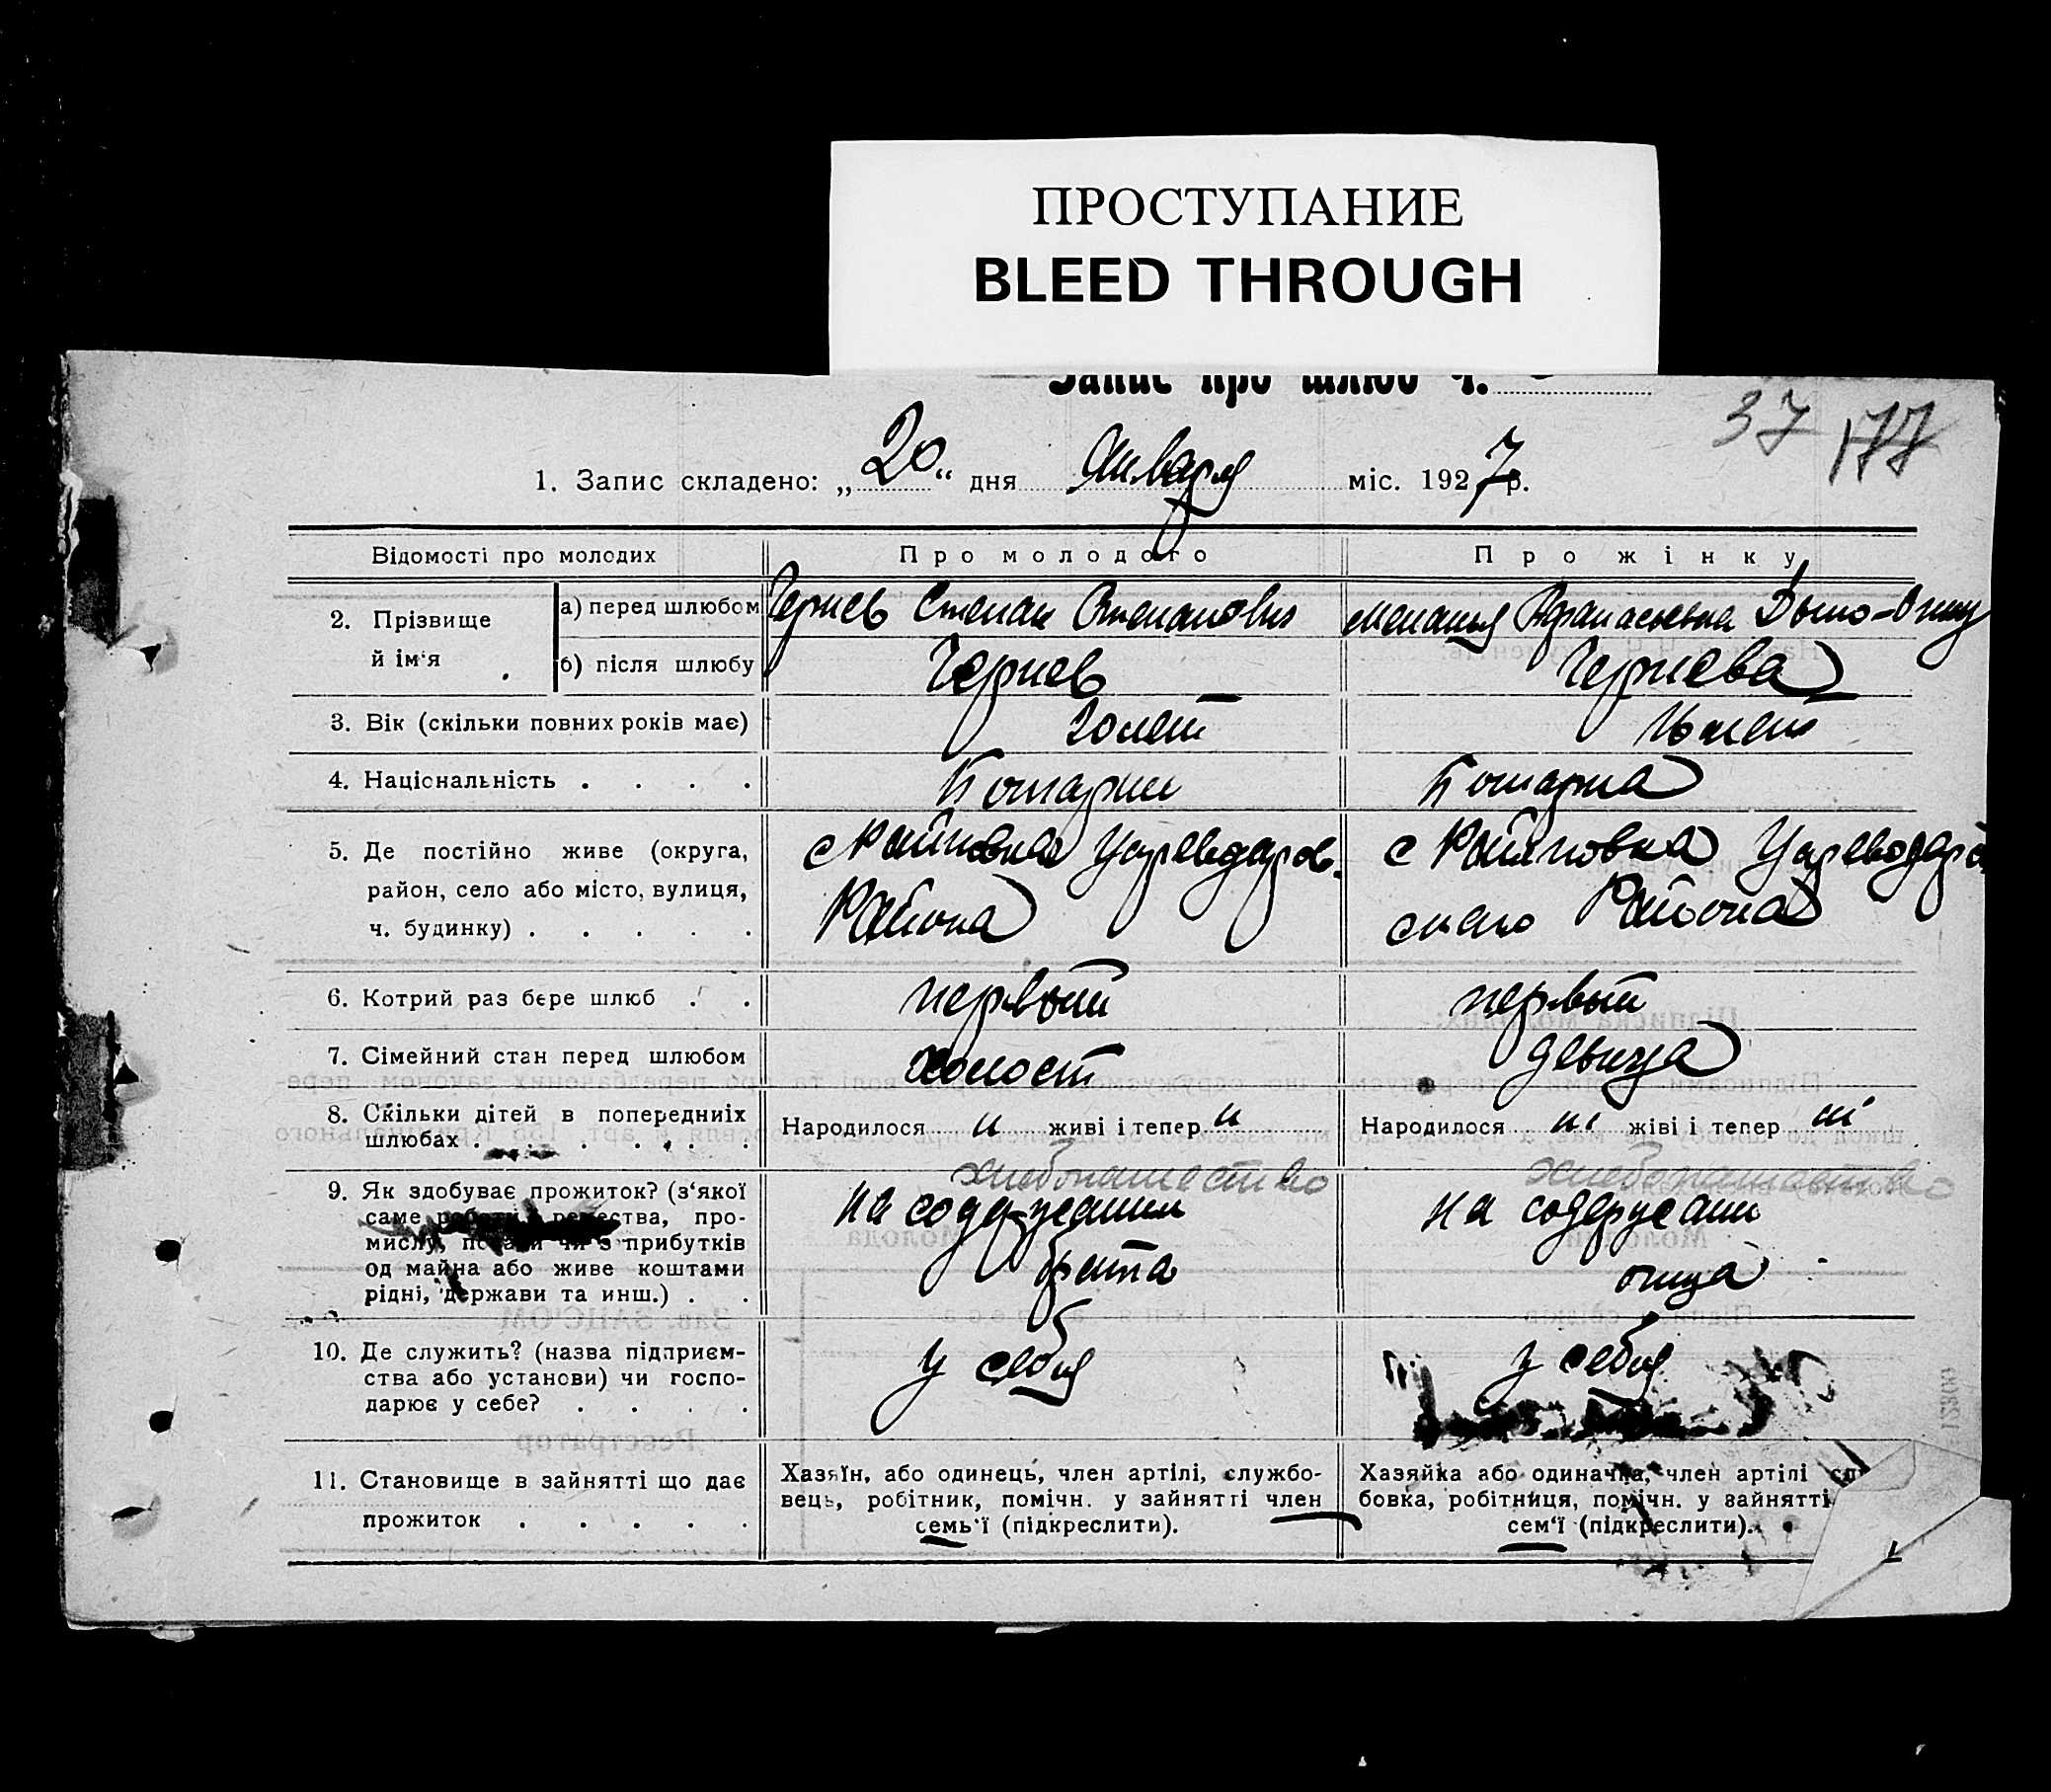 ПРОСТУПАНИЕ
BLEED THROUGH
Запис про шлюб ч.
37 177
1. Запис складено: „20“ дня Января міс. 1927 р.
Відомості про молодих Про молодого Про жінку
2. Прізвище й ім‘я
а) перед шлюбом Чернев Степан Степанович Меланья Афанасьевна
б) після шлюбу Чернев Чернева
3. Вік (скільки повних років має) 20 лет лет
4. Національність . . . .
5. Де постійно живе (округа, с Цареводаров.
район, село або місто, вулиця, Района с Цареводаров
ч. будинку) . . . . . ского Района
6. Котрий раз бере шлюб . . первый первый
7. Сімейний стан перед шлюбом холост девица
8. Скільки дітей в попередниіх Народилося н живі і тепер н Народилося ні жіві і тепер ні
шлюбах . . . . . .
хлебопашество хлебопашество
9. Як здобуває прожиток? (з‘якої на содержании на содержании
саме роботи, ремества, про- брата отца
мислу, посади чи з прибутків
од майна або живе коштами
рідні, держави та инш.) . .
10. Де служить? (назва підприєм- у себя у себя
ства або установи) чи госпо-
дарює у себе? . . . .
11. Становище в зайнятті що дає
прожиток . . . . .
Хазяїн, або одинець, член артілі, службо-
вець, робітник, помічн. у зайнятті член
семь‘ї (підкреслити).
Хазяйка або одиначка, член артілі сл
бовка, робітниця, помічн. у зайнятті
сем‘ї (підкреслити).